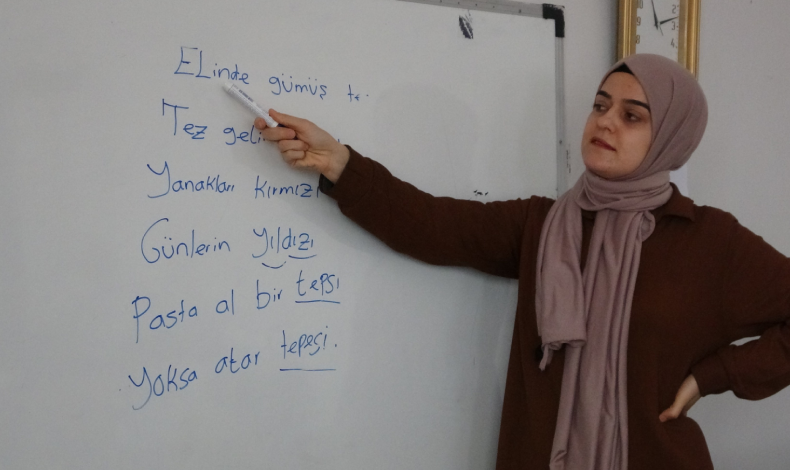 Elinde gümüş
Tez
Yanakları kırmızı
Günlerin yıldızı
Pasta al bir tepsi
Yoksa atar tepesi.